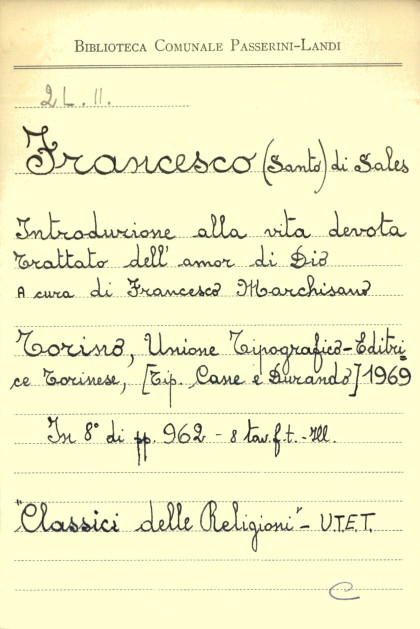 BIBLIOTECA COMUNALE PASSERINI-LANDI
2L.11.
Francesco (Santo) di Sales
Introduzione alla vita devota
Trattato dell'amor di Dio
A cura di Francesco Marchisano
Torino, Unione Tipografico-Editri-
ce Torinese, [Tip. Cane e Durando] 1969
In 8° di pp. 962 - 8 tav.f.t. - Ill.
"Classici delle Religioni" - U.T.E.T.
C